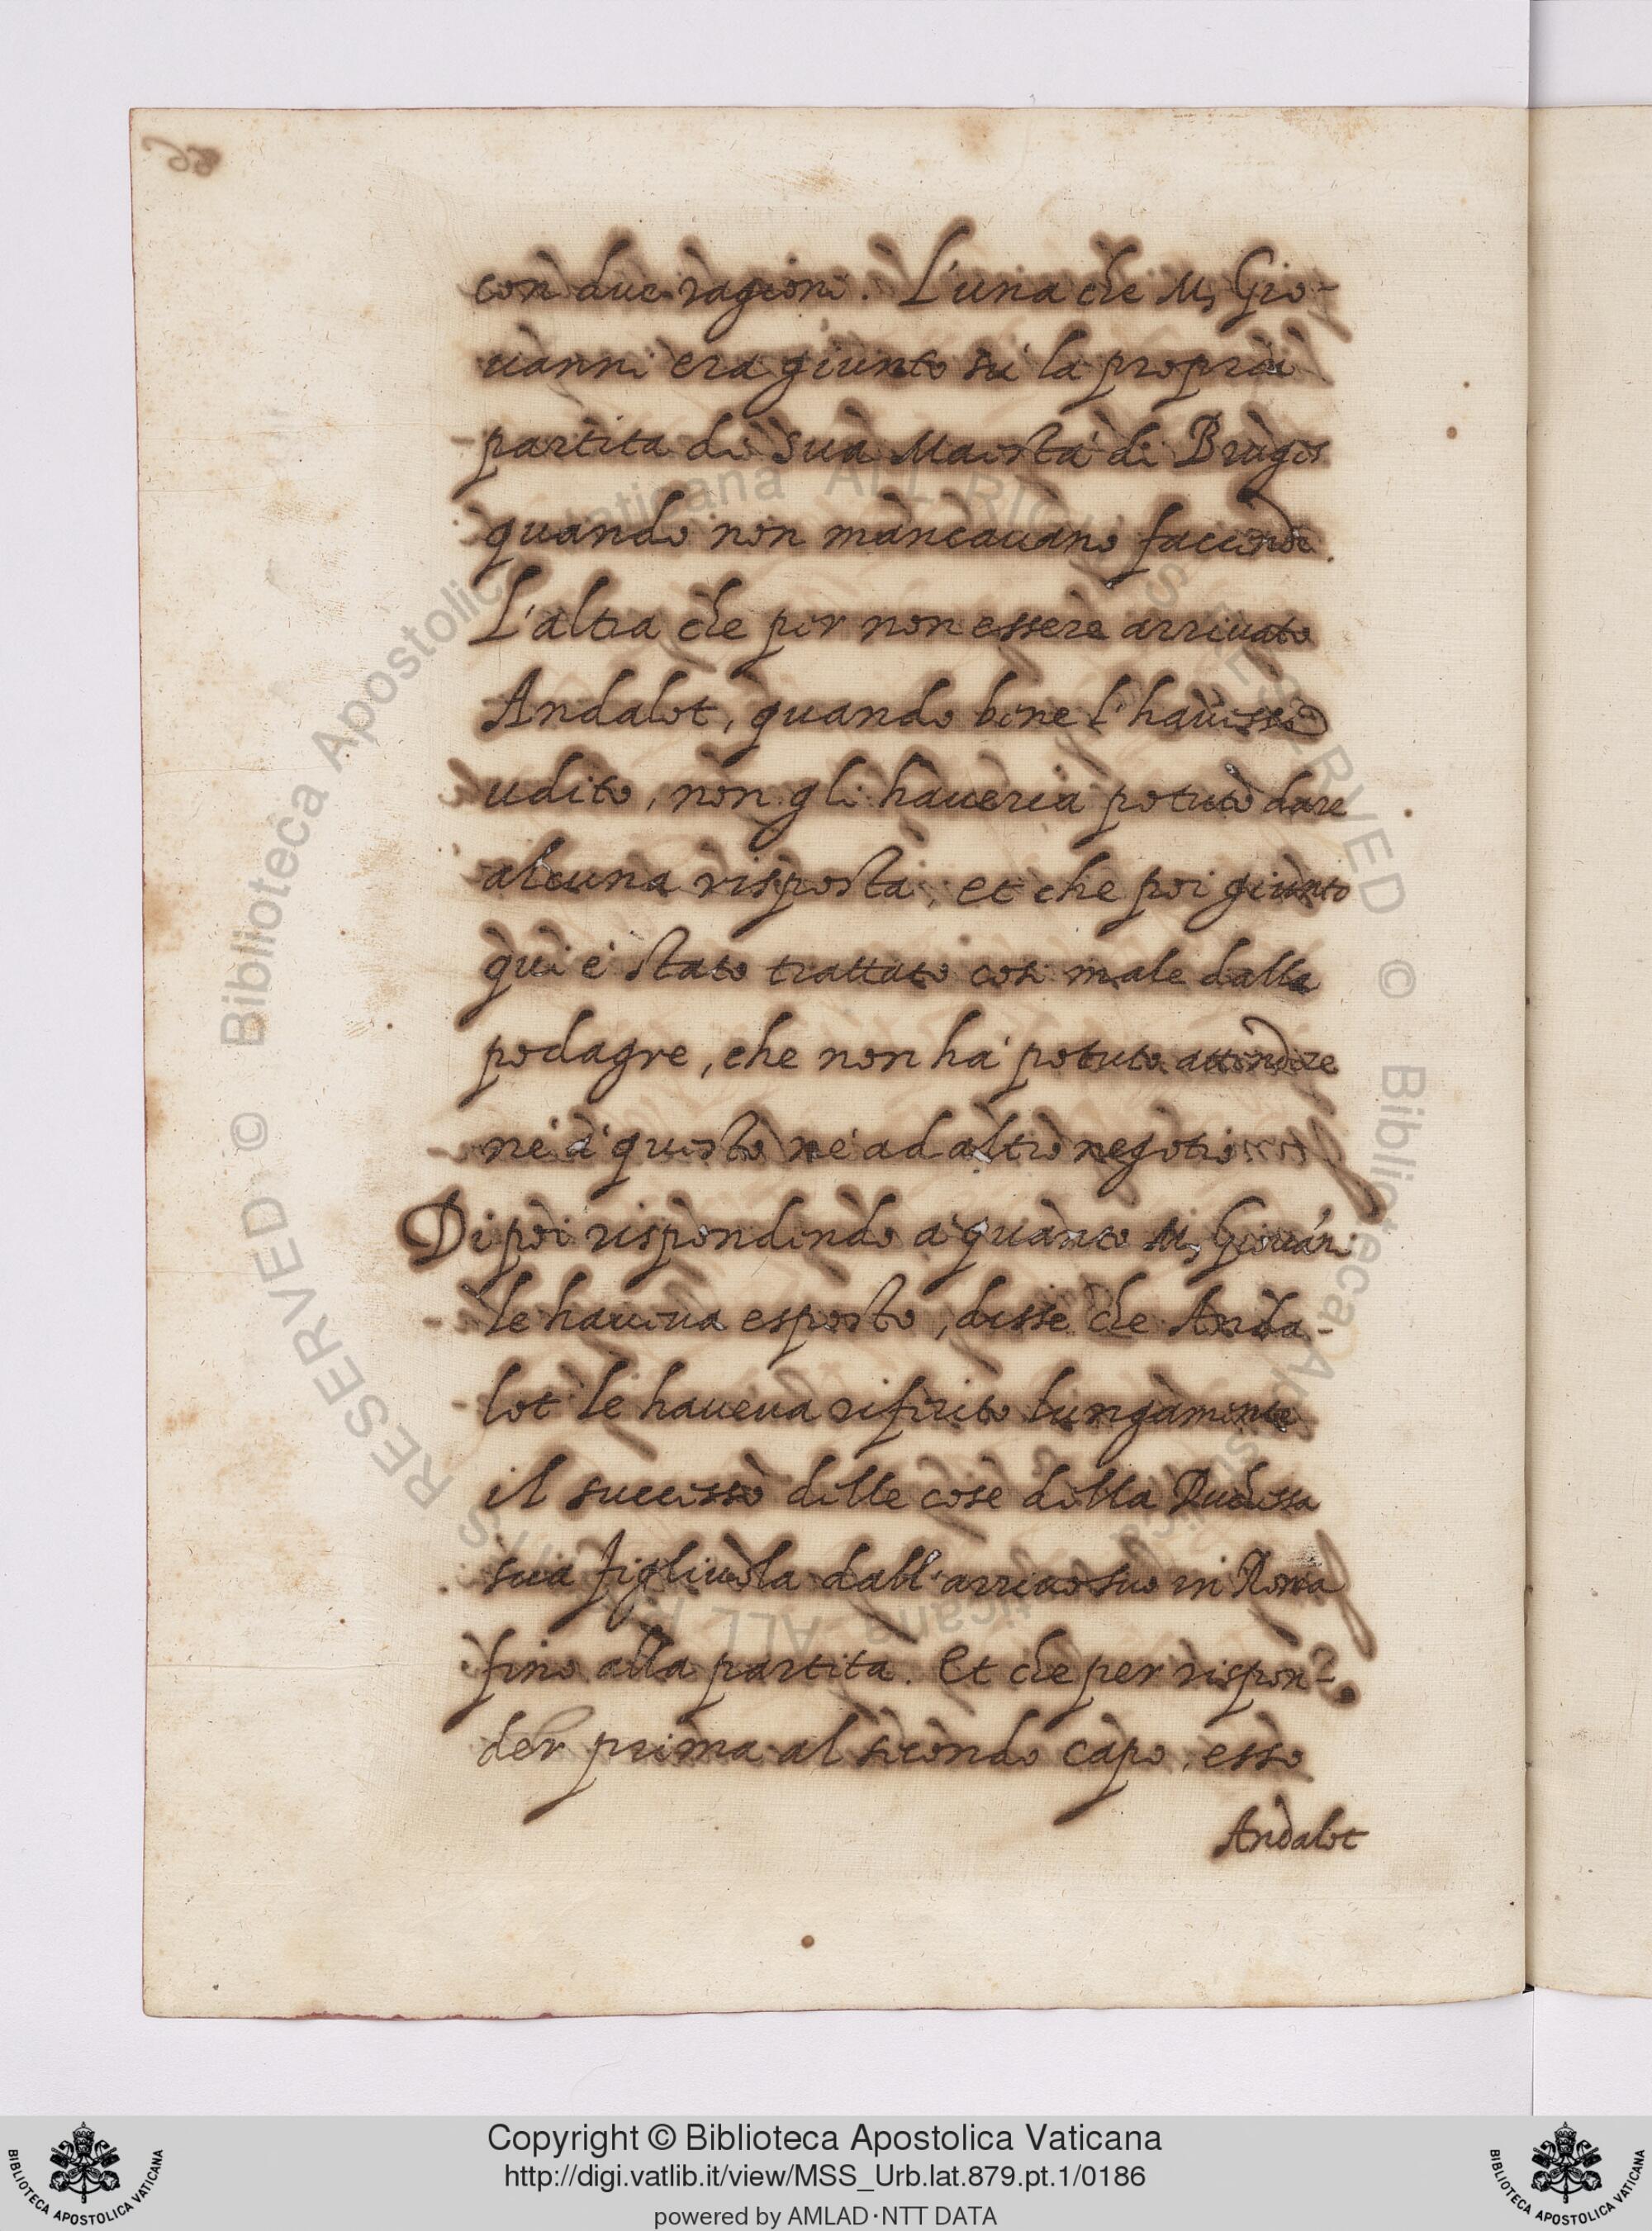 con due ragioni. L'una che M, Gio-
uanni era giunto su la propria
partita di Sua Maestà di Bruges
quando non mancauano facende.
L'altra che per non essere arriuato
Andalot, quando bene l'hauesse
udito, non gli haueria potuto dare
alcuna risposta, et che poi giunto
qui è stato trattato cosi male dalla
podagre, che non hà potuto attendere
né à questo né ad altro negotio
Di poi rispondendo à quanto M, Giouáni
le haueua esposto, disse che Anda-
lot le haueua riferito lungamente
il successo delle cose della Duchessa
sua figliuola dall'arriuo suo in Roma
fino alla partita. Et che per rispon-
der prima al secondo capo, esso
Andalot
© Biblioteca Apostolica Vaticana ALL RIGHTS RESERVED © Biblioteca Apostolica Vaticana ALL RIGHTS RESERVED
Copyright © Biblioteca Apostolica Vaticana
http://digi.vatlib.it/view/MSS_Urb.lat.879.pt.1/0186
powered by AMLAD·NTT DATA
BIBLIOTECA APOSTOLICA VATICANA
BIBLIOTECA APOSTOLICA VATICANA